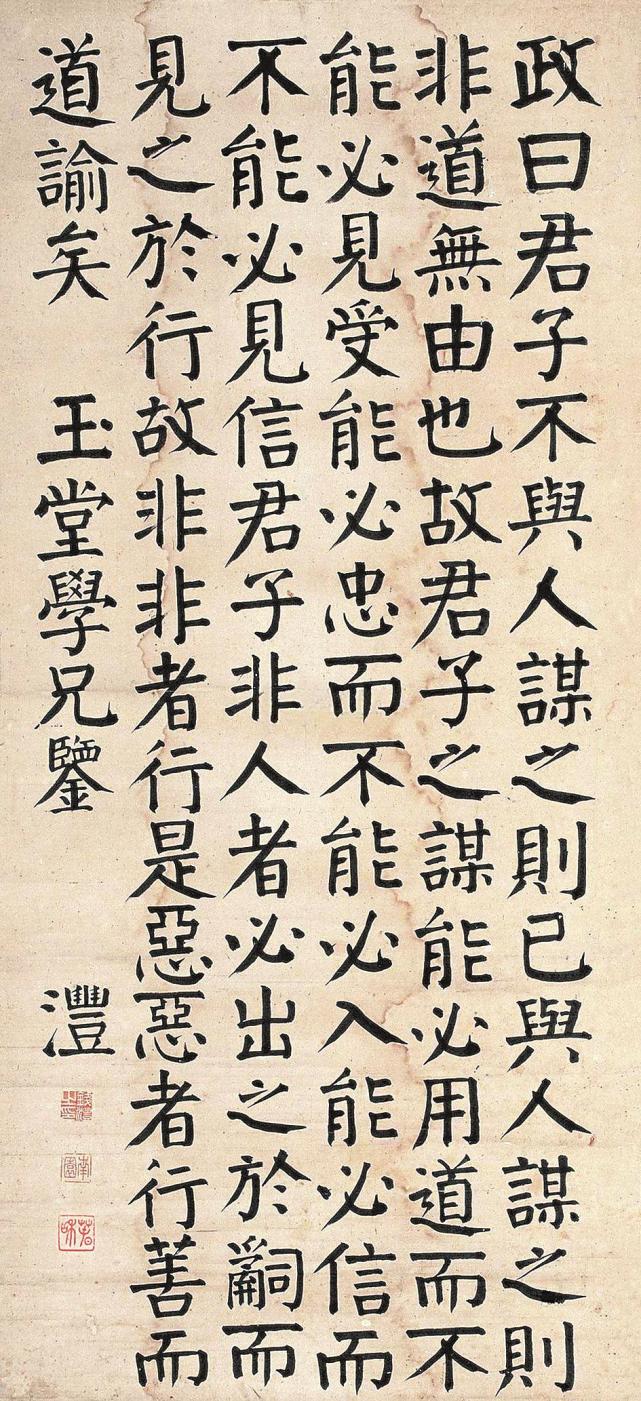 政曰君子不與人謀之則已與人謀之則
非道無由也故君子之謀能必用道而不
能必見受能必忠而不能必入能必信而
不能必見信君子非人者必出之於辭而
見之於行故非非者行是惡惡者行善而
道諭矣 玉堂學兄鑒 灃